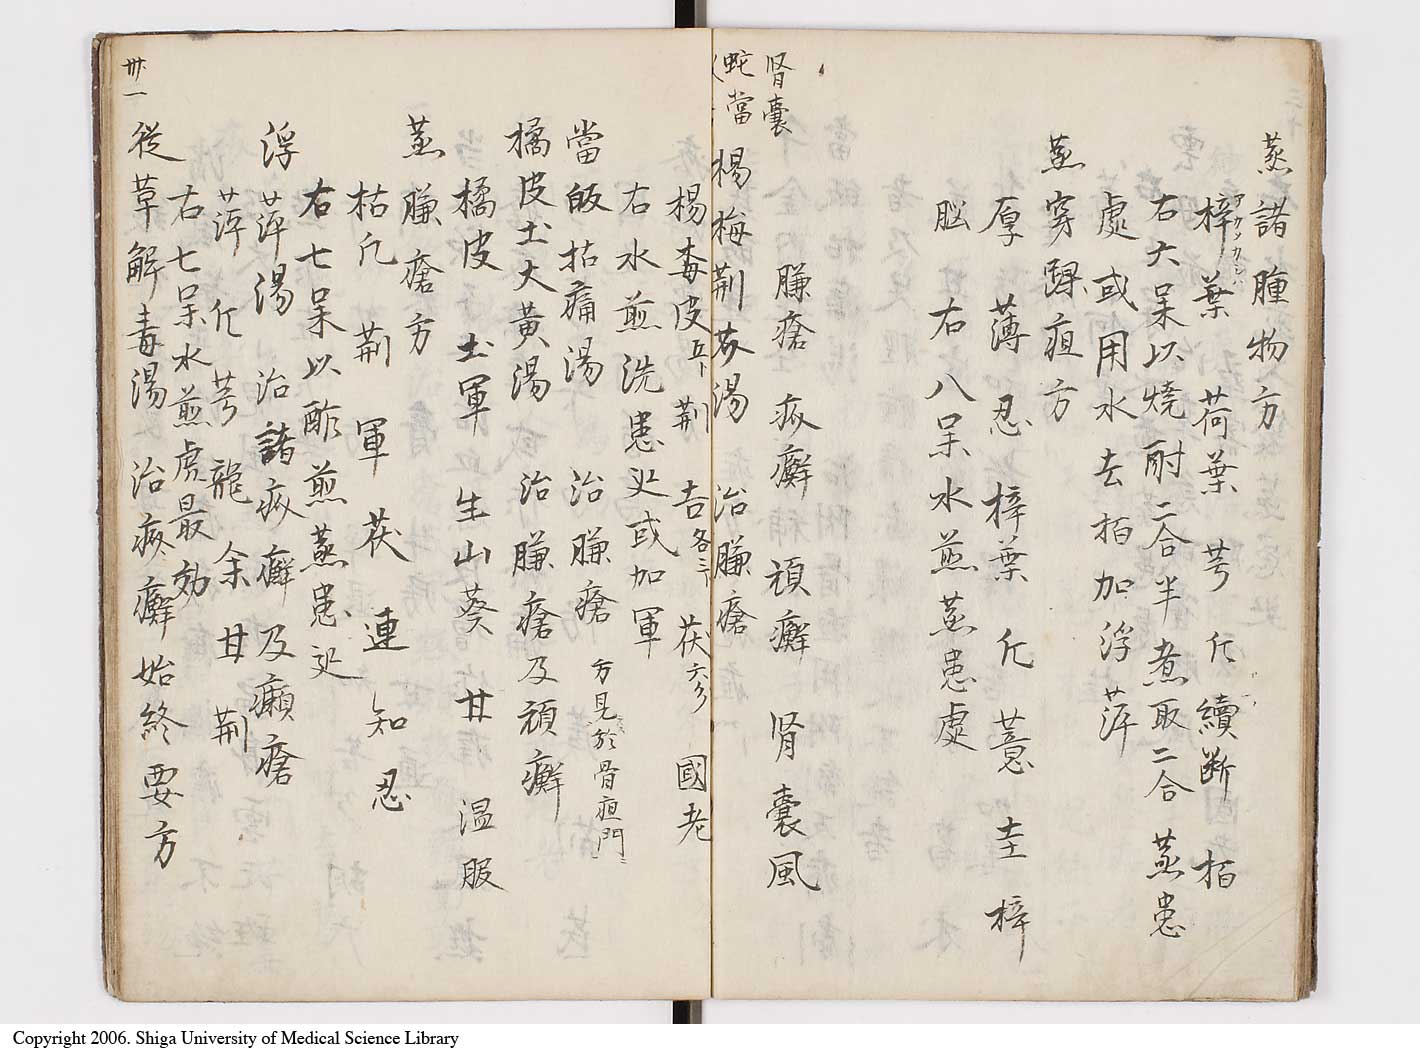 蒸諸腫物方
梓葉 荷葉 芎 仡 續断 栢
アカメカシハ
右六味以燒酎二合半煮取二合蒸患
處或用水去栢加浮萍
蒸穿踝疽方
厚 薄 忍 梓葉 仡 薏 圭 梓
脳 右八味水煎蒸患處
臁瘡 疥癬 頑癬 腎囊風
腎囊
蛇當
楊梅荆芥湯 治臁瘡
楊毒皮 荆 吉各三 茯六分 國老
右水煎洗患処或加軍
當皈拈痛湯 治臁瘡 方見於骨疽門ニ
橘皮土大黄湯 治臁瘡及頑癬
橘皮 土軍 生山葵 甘 温服
蒸臁瘡方
枯凢 荆 軍 茯 連 知 忍
右七味以酢煎蒸患処
浮萍湯 治諸疥癬及癩瘡
萍 仡 芎 龍 余 甘 荆
右七味水煎處最効
従革解毒湯 治疥癬始終要方
卅一
Copyright 2006. Shiga University of Medical Science Library